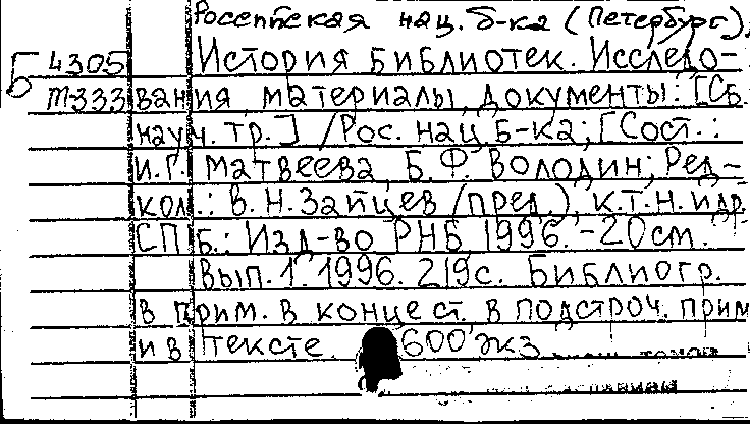 Российская нац. б-ка (Петербург).
Б 4305 История библиотек. Исследо-
т333 вания, материалы, документы: [Сб.
науч. тр.] / Рос. нац. б-ка; [Сост.:
И.Г. Матвеева, Б.Ф. Володин; Ред-
кол.: В.Н. Зайцев (пред.), к.т.н. и др.
СПб.: Изд-во РНБ, 1996. - 20 см.
Вып. 1. 1996. 219 с. Библиогр.
в прим. в конце ст., в подстроч. прим
и в тексте. 600 экз